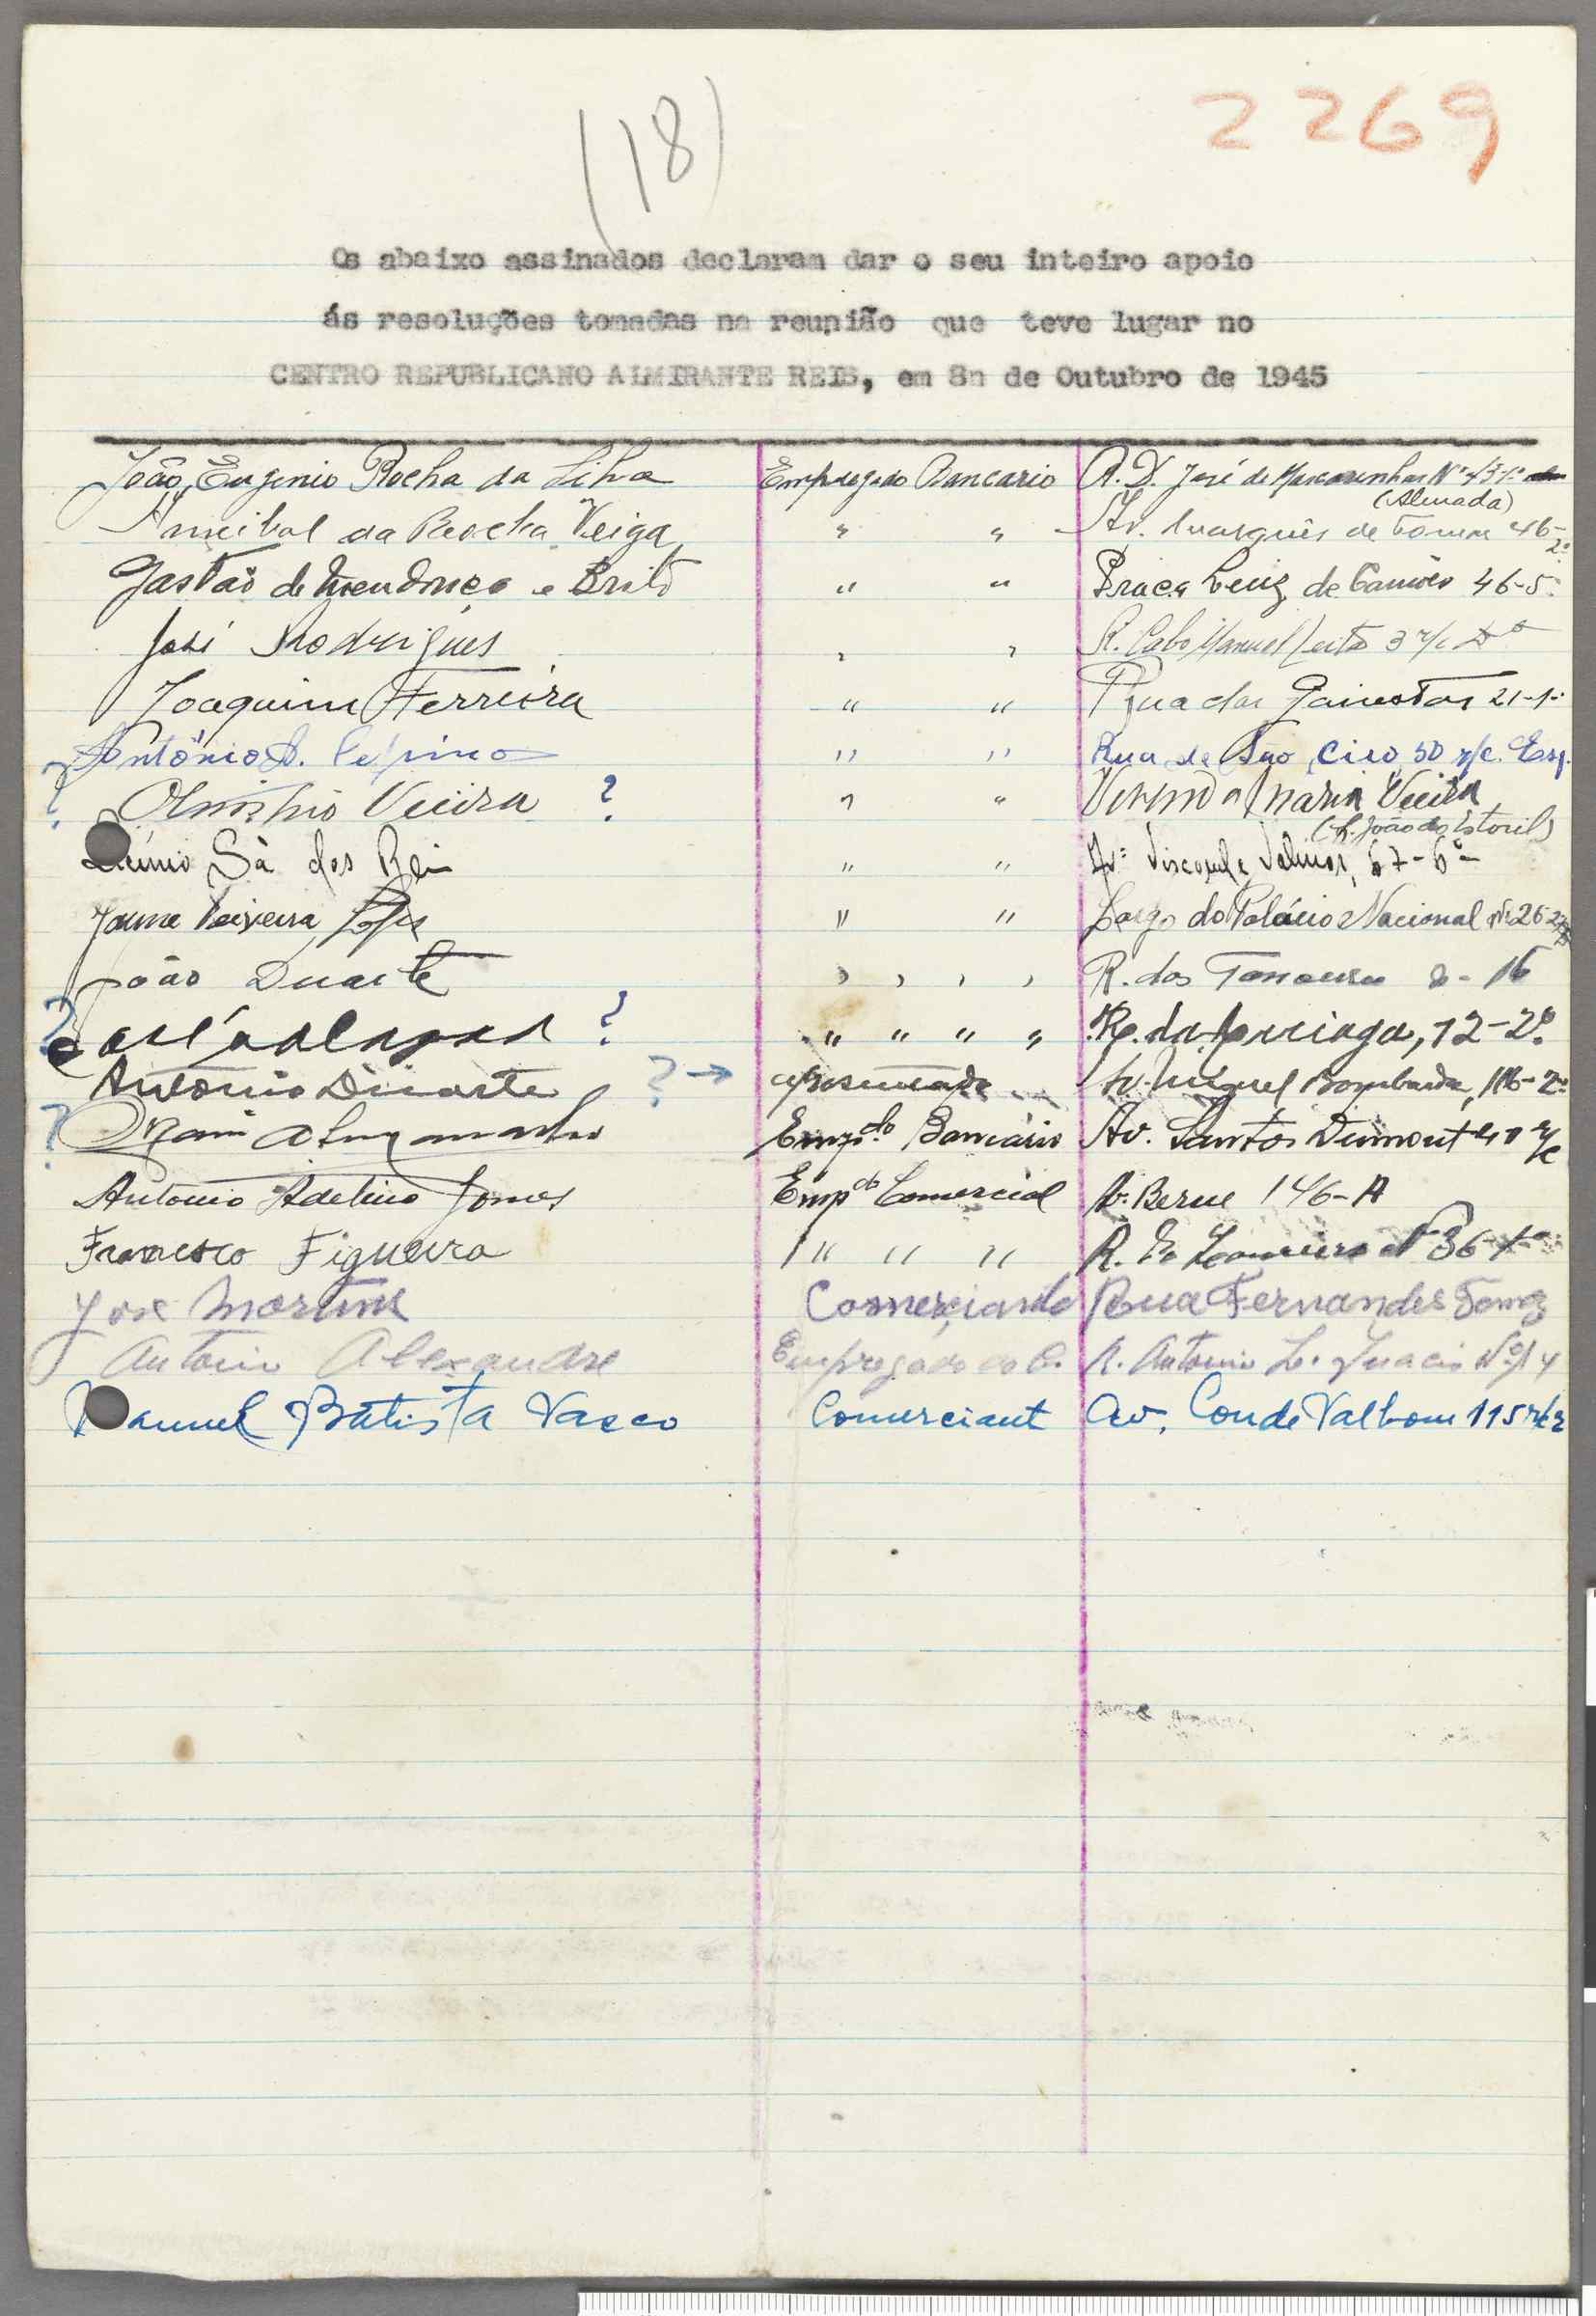 (18)
2269
Os abaixo assinados declaram dar o seu inteiro apoio
ás resoluções tomadas na reunião que teve lugar no
CENTRO REPUBLICANO ALMIRANTE REIS, em 8n de Outubro de 1945
João Eugenio Rocha da Silva Empregado Bancario R. D. José de Mascarenhas Nº
(Almada)
Anibal da Rocha Veiga " " Av. Marquês de Tomar 46-2º
Gastão de Mendonça e Brito " " Praça Luiz de Camões 46-5º
José Rodrigues " " R. Cabo Manuel Leitão 3 r/c
Joaquim Ferreira " " Rua das Janelas 21-1º
António " " Rua de São Ciro, 50 r/c. Esq.
? Vieira ? " " Maria Vieira
(S. João do Estoril)
Sá dos Reis " " Av. Visconde Valmor, 67-6º
Jaime Teixeira Lopes " " Largo do Palácio Nacional Nº 26
João Duarte " " " " R. dos 16
? ? " " " " R. da Arriaga, 12-2º
António Duarte ? → aposentado Av. Miguel Bombarda, 116-2º
? Empdo. Bancário Av. Santos Dumont r/c
Antonio Adelino Gomes Empdo Comercial Av. Berne 146-A
Francisco Figueira " " " R. Nº 36
José Martins Comerciante Rua Fernandes Tomaz
Antonio Alexandre Empregado do C. R. Antonio L. Inacio Nº 14
Manuel Batista Vasco Comerciant Av. Conde Valbom 115